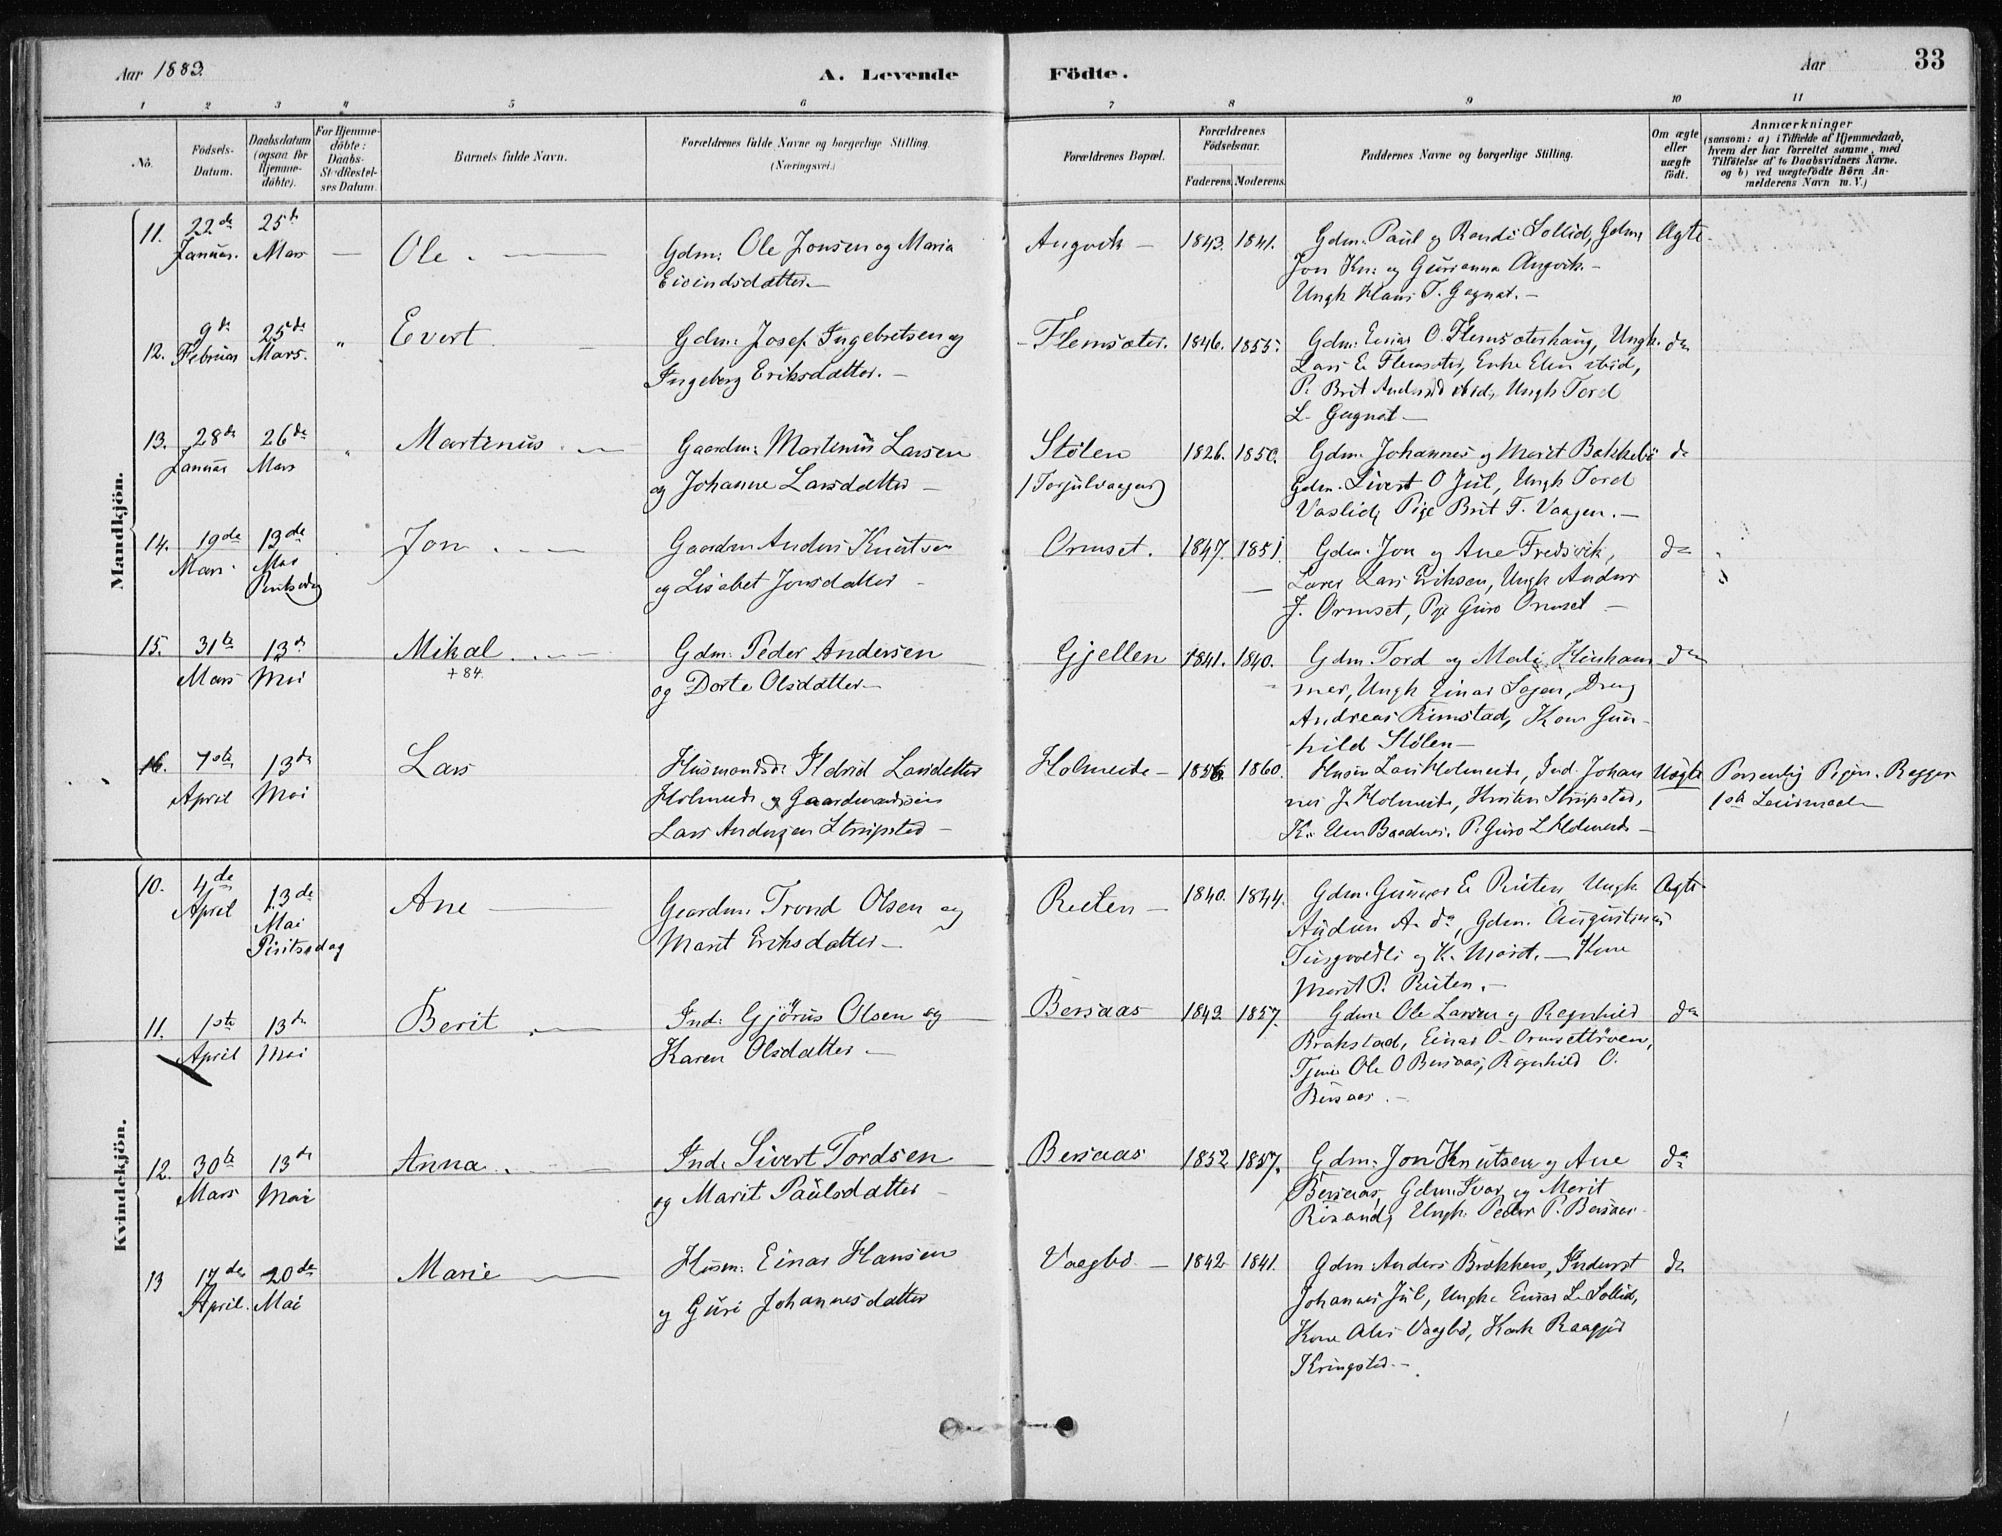 Aar 1883.
A. Levende Födte.
Aar
33
1 2 3 4 5 6 7 8 9 10 11
No.
Födsels-
Datum.
Daabsdatum
(ogsaa for
Hjemme-
döbte).
For Hjemme-
döbte:
Daabs-
Stadfestel-
ses Datum.
Barnets fulde Navn.
Forældrenes fulde Navne og borgerlige Stilling.
(Næringsvei.)
Forældrenes Bopæl.
Forældrenes
Födselsaar.
Faderens. Moderens.
Faddernes Navne og borgerlige Stilling.
Om ægte
eller
uægte
födt.
Anmærkninger
(saasom: a) i Tilfælde af Hjemmedaab,
hvem der har forrettet samme, med
Tilföielse af to Daabsvidners Navne.
og b) ved uægtefödte Börn An-
melderens Navn m. V.)
Mandkjön.
11. 22de Januar. 25de Mars — Ole. —
Gdm: Ole Jonsen og Maria
Eivindsdatter. —
Angvik — 1843. 1841.
Gdm. Paul og Randi Sollid, Gdm
Jon Kn: og Gurianna Angvik. —
Ungk Hans T. Gagnat. —
Ægte
12. 9de Februar 25de Mars. " Evert
Gdm: Josef Ingebretsen og
Ingeberg Eriksdatter. —
Flemsæter. 1846. 1855.
Gdm: Einar O. Flemsæterhaug, Ungk.
Lars E. Flemsæter, Enke Elen ibid,
P. Brit Andersd ibid, Ungk Tord
L. Gagnat —
do
13. 28de Januar 26de Mars " Martinus. —
Gaardm: Martinus Larsen
og Johanne Larsdatter —
Stølen
(Torjulvaagen)
1826. 1850.
Gdm. Johannes og Marit Bakkebø
Gdm. Sivert O Jul, Ungk Tord
Vaslid, Pige Brit T. Vaagen. —
do
14. 19de Mars. 13de Mai Pintsedag Jon. —
Gaardm Anders Knutsen
og Lisabet Jonsdatter —
Ormset. 1847. 1851.
Gdm. Jon og Ane Fredsvik,
Lærer Lars Eriksen, Ungk Anders
J. Ormset, Pige Guro Ormset —
do
15. 31te Mars 13de Mai Mikal. —
+ 84.
Gdm: Peder Andersen
og Dorte Olsdatter —
Gjellen 1841. 1840.
Gdm. Tord og Mali Kinham-
mer, Ungk Einar Sogen, Dreng
Andreas Rimstad, Kone Gun-
hild Stølen —
do
16. 7de April 13de Mai Lars
Husmandsd: Ildrid Larsdatter
Holmeide og Gaardmandssøn
Lars Andersen Strupstad —
Holmeide — 1856 1860.
Husm Lars Holmeide, Ind. Johan
nes J. Holmeide, Kristen Strupstad,
K. Elen Baadnes. P. Guro L Holmeide —
Uægte
Personlig Pigen. Begges
1ste Leiermaal
Kvindekjön.
10. 4de April 13de Mai Pintsedag Ane —
Gaardm: Trond Olsen og
Marit Eriksdatter —
Ruten — 1840. 1844.
Gdm. Gunnar E. Ruten, Ungk
Audun A. do, Gdm. Augustinus
Tingvoldli og K. Marit. — Kone
Marit P. Ruten. —
Ægte
11. 1ste April 13de Mai Berit. —
Ind: Gjørus Olsen og
Karen Olsdatter —
Bersaas 1842 1857.
Gdm. Ole Larsen og Ragnhild
Brakstad, Einar O. Ormsettrøen,
Tjener Ole O Bersaas, Ragnhild O.
Bersaas. —
do
12. 30te Mars 13de Mai Anna. —
Ind: Sivert Tordsen
og Marit Paulsdatter —
Bersaas 1852 1857.
Gdm: Jon Knutsen og Ane
Bersaas, Gdm. Ivar og Marit
Risand, Ungk. Peder P. Bersaas
do
13 17de April. 20de Mai Marie —
Husm: Einar Hansen
og Guri Johannesdatter
Vaagbø. — 1842 1841.
Gdm: Anders Brækken, Inderst
Johannes Jul, Ungk. Einar L. Sollid,
Kone Ales Vaagbø, Kork Raagjer
Kringstad. —
do